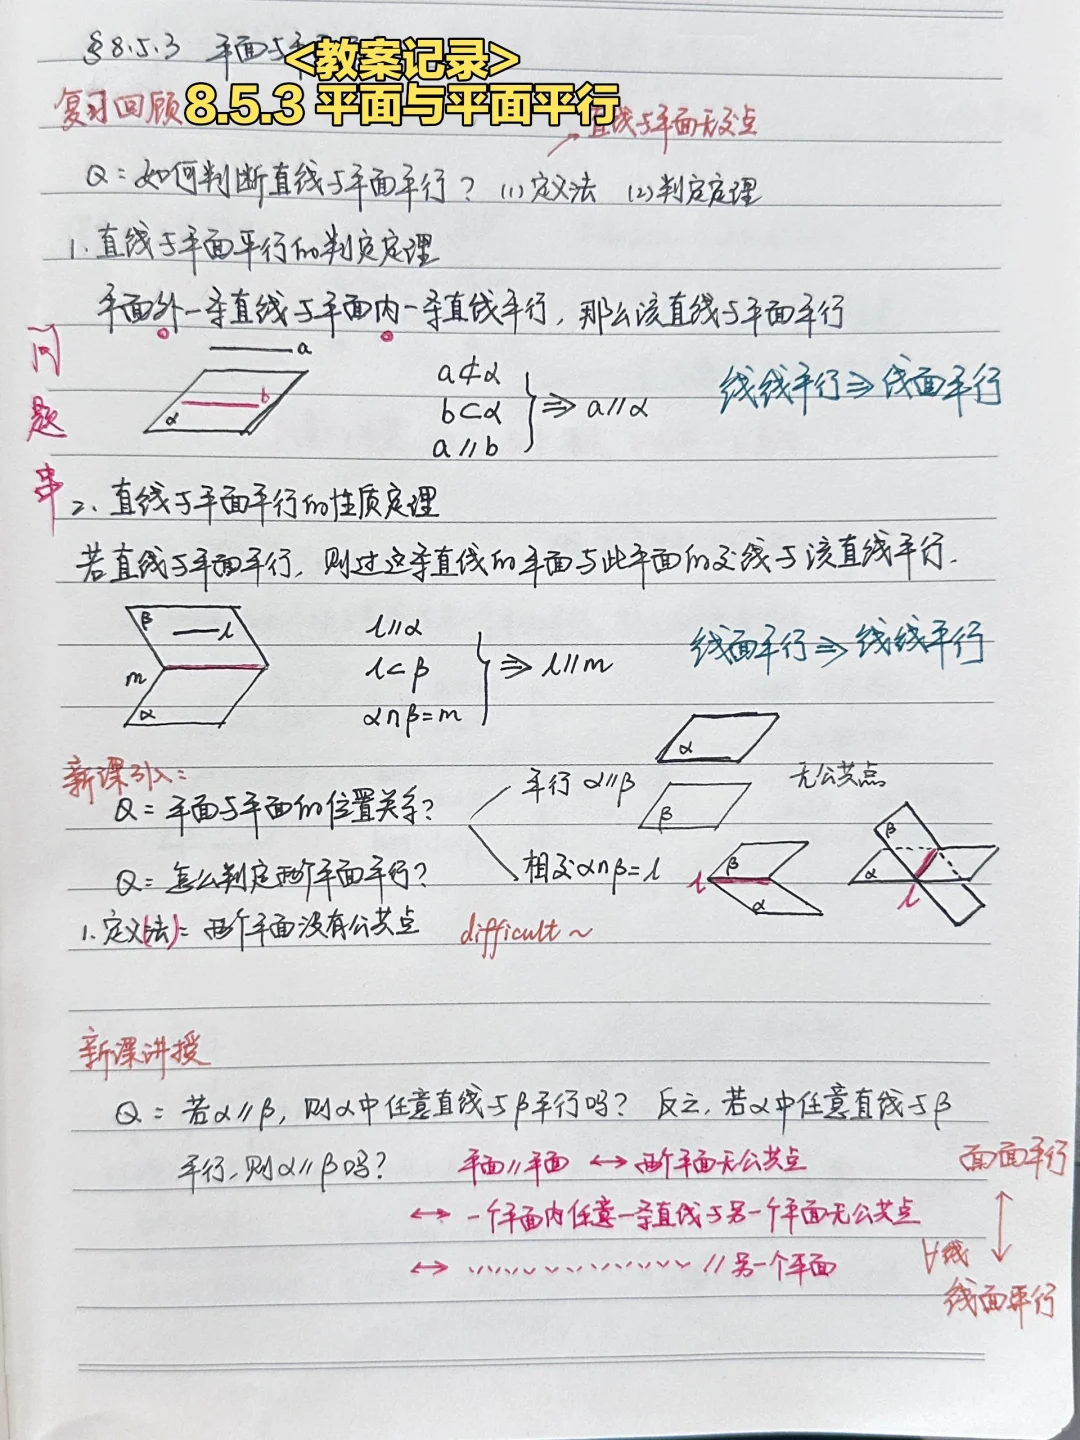 §8.5.3 平面与平
<教案记录>
8.5.3 平面与平面平行
复习回顾
直线与平面无交点
Q：如何判断直线与平面平行？ (1)定义法 (2)判定定理
1. 直线与平面平行的判定定理
平面外一条直线与平面内一条直线平行，那么该直线与平面平行
问题串
a
b
α
a⊄α
b⊂α
a∥b
⇒ a∥α
线线平行⇒线面平行
2. 直线与平面平行的性质定理
若直线与平面平行，则过这条直线的平面与此平面的交线与该直线平行.
β
l
m
α
l∥α
l⊂β
α∩β=m
⇒ l∥m
线面平行⇒线线平行
新课引入：
Q：平面与平面的位置关系？
平行 α∥β
α
β
无公共点
相交 α∩β=l
l
β
α
β
α
l
Q：怎么判定两个平面平行？
1. 定义(法)：两个平面没有公共点 difficult～
新课讲授
Q：若α∥β，则α中任意直线与β平行吗？ 反之，若α中任意直线与β
平行，则α∥β吗？ 平面∥平面 ↔ 两个平面无公共点
↔ 一个平面内任意一条直线与另一个平面无公共点
↔ 〃〃〃〃〃〃〃〃 ∥另一个平面
面面平行
↕
∀线
线面平行